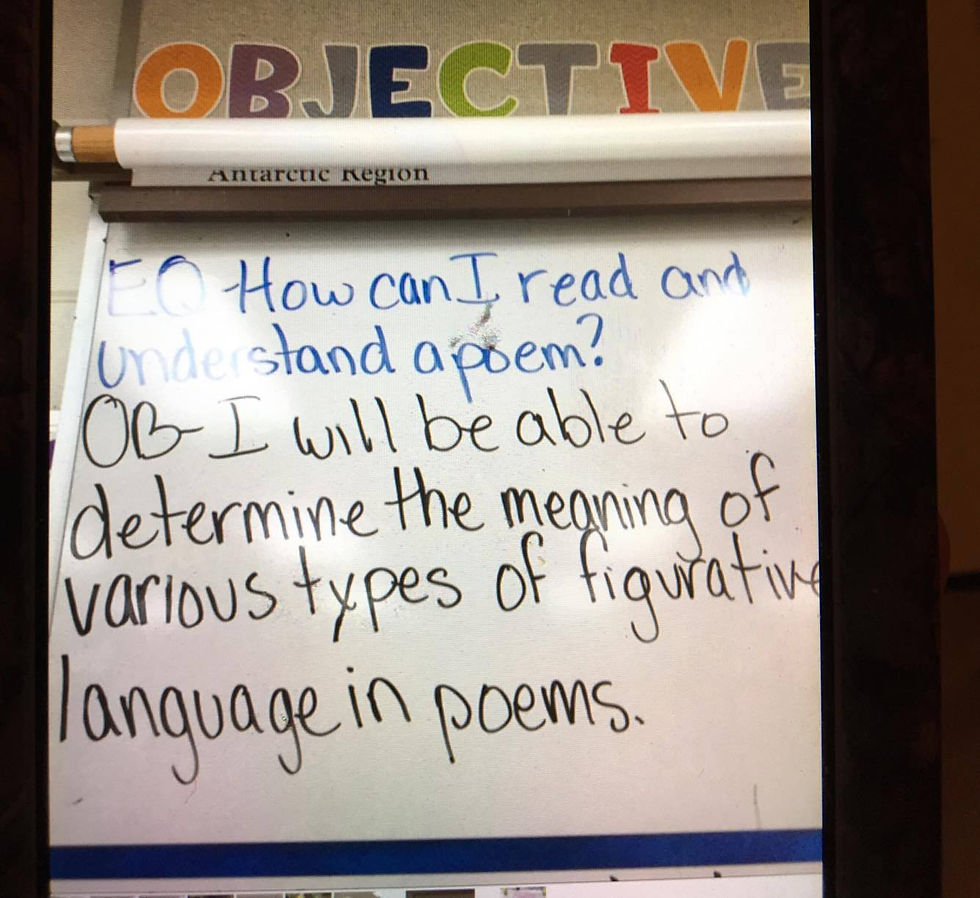 OBJECTIVE
Antarctic Region
EQ-How can I read and
understand a poem?
OB-I will be able to
determine the meaning of
various types of figurative
language in poems.